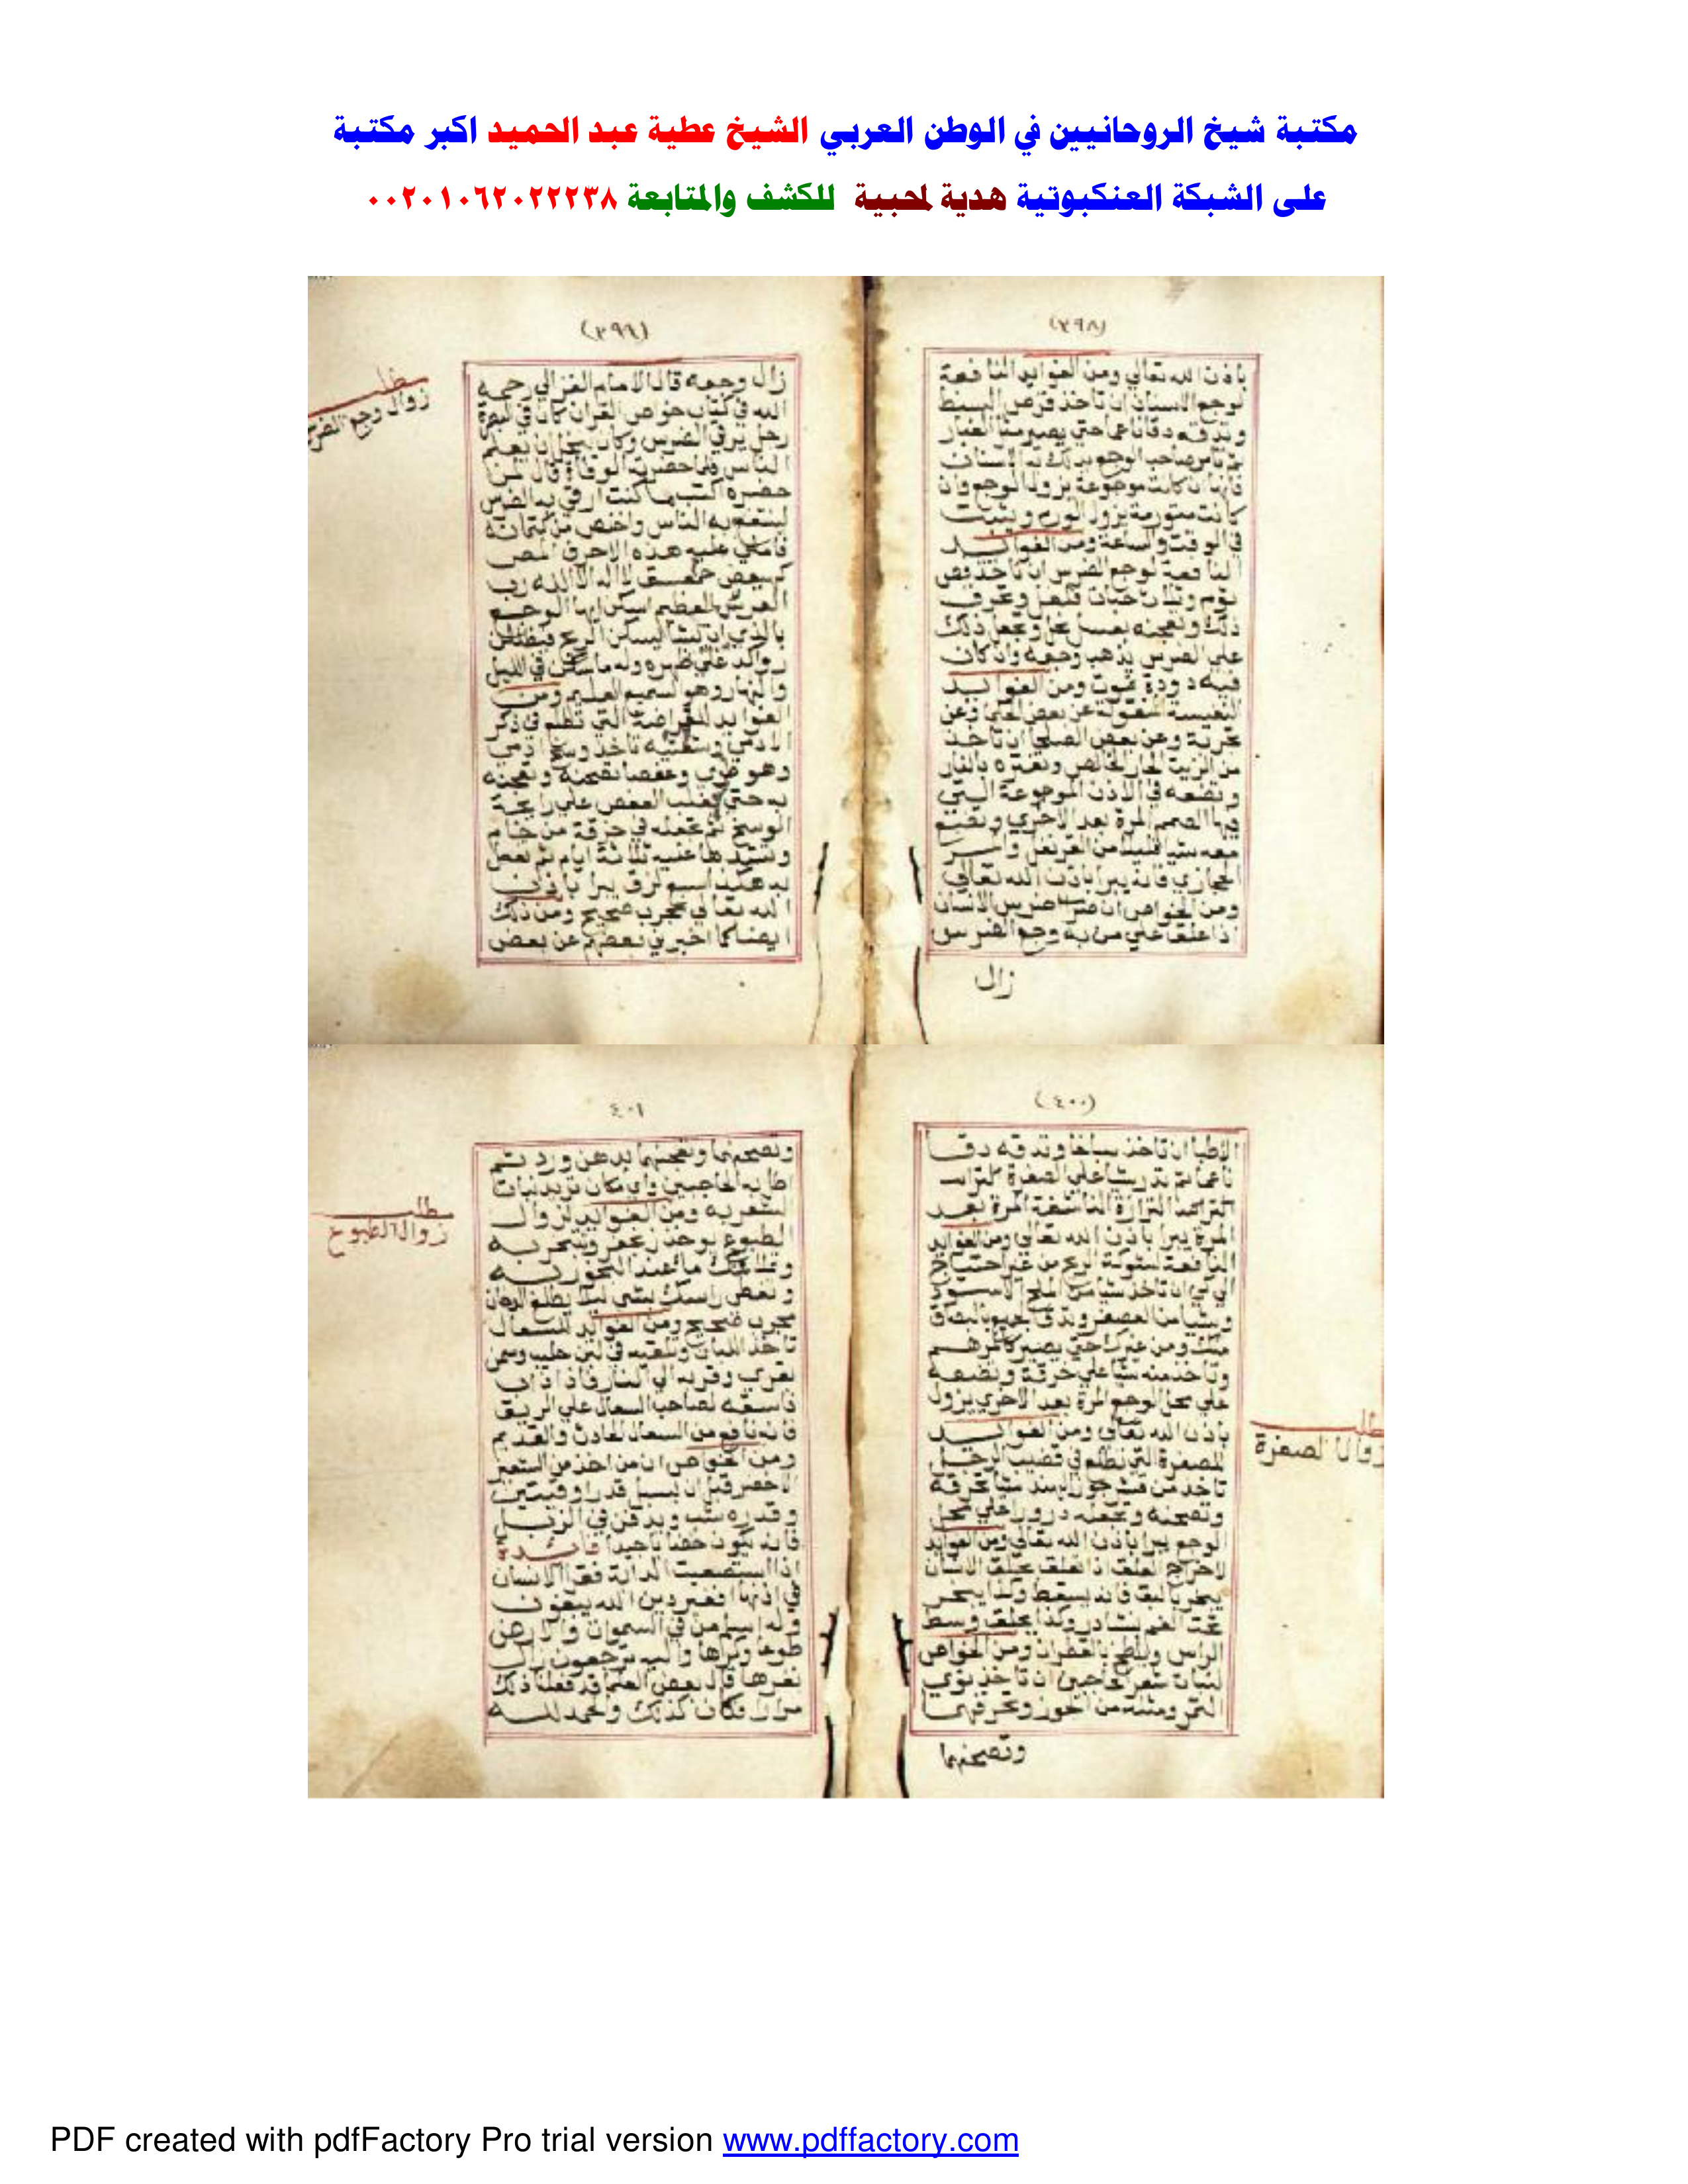 مكتبة شيخ الروحانيين في الوطن العربي الشيخ عطية عبد الحميد اكبر مكتبة
على الشبكة العنكبوتية هدية لمحبية للكشف والمتابعة ٠٠٢٠١٠٦٢٠٢٢٢٣٨
(٣٩٨)
باذن الله تعالي ومن الفوايد النافعة
لوجع الاسنان ان تاخذ قرص
وتدقه دقا ناعما حتي يصير مثل الغبار
صاحب الوجع يدلك به الاسنان
كانت موجوعة يزول الوجع وان
كانت متورمة يزول الورم
في الوقت والساعة ومن الفوايد
النافعة لوجع الضرس ان تاخذ فص
ثوم وثمان حبات فلفل وتحرق
ذلك وتعجنه بعسل نحل وتجعل ذلك
علي الضرس يذهب وجعه وان كان
فيه دودة تموت ومن الفوايد
النفيسة المنقولة عن بعض
تجربة وعن بعض الصلحا ان تاخذ
من الزيت الحار الخالص بالنار
وتضعه في الاذن الموجوعة التي
فيها الصمم المرة بعد الاخري وتضع
معه شيا قليلا من القرنفل
الحجازي فانه يبرا باذن الله تعالي
ومن الخواص ان ضرس الانسان
اذا علق علي من به وجع الضرس
زال
(٣٩٩)
زال وجعه قال الامام الغزالي رحمه
الله في كتاب خواص القران كان في البصرة
رجل يرقي الضرس وكان يبخل ان يعلم
الناس فلما حضرته الوفاة قال لمن
حضره اكتب ما كنت ارقي به الضرس
لينتفع به الناس من كتمانه
فاملي عليه هذه الاحرف المص
كهيعص حمعسق لا اله الا الله رب
العرش العظيم اسكن ايها الوجع
بالذي ان يشا يسكن الريح فيظللن
رواكد علي ظهره وله ما سكن في الليل
والنهار وهو السميع العليم ومن
الفوايد التي تطلع في ذكر
الادمي تاخذ وسخ ادمي
وهو طري وعفصا تصحنه وتعجنه
به حتي يغلب العفص علي رايحة
الوسخ ثم تجعله في خرقة من خام
وتشدها عليه ثلاثة ايام
يبرا باذن
الله تعالي مجرب صحيح ومن ذلك
ايضا كما اخبرني بعضهم عن بعض
مطلب
زوال وجع الضرس
(٤٠٠)
الاطبا ان تاخذ وتدقه دقا
ناعما ثم تدر شيا علي الصفرة
الناشفة المرة بعد
المرة يبرا باذن الله تعالي ومن الفوايد
النافعة لشوكة الريح من غير احتياج
الي كي ان تاخذ شيا من الملح الاسود
وشيا من العصفر وتدق الجميع
حتي يصير كالمرهم
وتاخذ منه شيا علي خرقة وتضعه
علي محل الوجع المرة بعد الاخري يزول
باذن الله تعالي ومن الفوايد
للصفرة التي تطلع في قضيب الرجل
تاخذ من قشر جوز الهند شيا تحرقه
وتصحنه وتجعله درور علي محل
الوجع يبرا باذن الله تعالي ومن الفوايد
لاخراج العلق اذا تعلق بحلق الانسان
يبخر بالبق فانه يسقط وكذا يبخر
تحت الفم بنشادر وكذا يحلق وسط
الراس ويلطخ بالقطران ومن الخواص
لنبات شعر الحاجبين ان تاخذ نوي
التمر ومثله من وتحرقهما
وتصحنهما
مطلب
زوال الصفرة
٤٠١
وتصحنهما وتعجنهما بدهن ورد ثم
اطل به الحاجبين واي مكان تريد نبات
الشعر به ومن الفوايد لزوال
الطبوع يوخذ زعفر وتتبخر به
عند البخور به
راسك بشي
مجرب صحيح ومن الفوايد للسعال
تاخذ اللبان وتلقيه في لبن حليب وسمن
بقري وقربه الي النار فاذا ذاب
فاسقه لصاحب السعال علي الريق
فانه نافع من السعال الحادث والقديم
ومن الخواص ان من اخذ من الشعير
الاخضر قبل ان يسبل قدر اوقيتين
وقدره شب ويدفن في الزبل
فانه يكون خضابا جيدا فايدة
اذا استصعبت الدابة فقرا الانسان
في اذنها افغير دين الله يبغون
وله اسلم من في السموات والارض
طوعا وكرها واليه ترجعون زال
نفرها قال بعض العلما قد فعلنا ذلك
مرارا فكان كذلك والحمد لله
مطلب
زوال الطبوع
PDF created with pdfFactory Pro trial version www.pdffactory.com